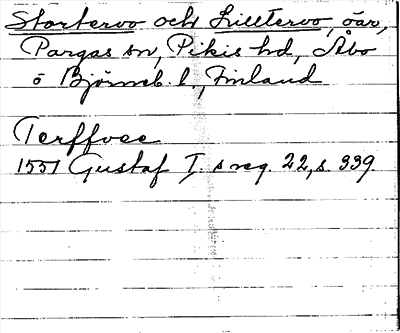 Stortervo och Lilltervo, öar,
Pargas sn, Pikis hd, Åbo
o Björneb. l., Finland
Terffvoee
1551 Gustaf I. s reg. 22, s. 339.